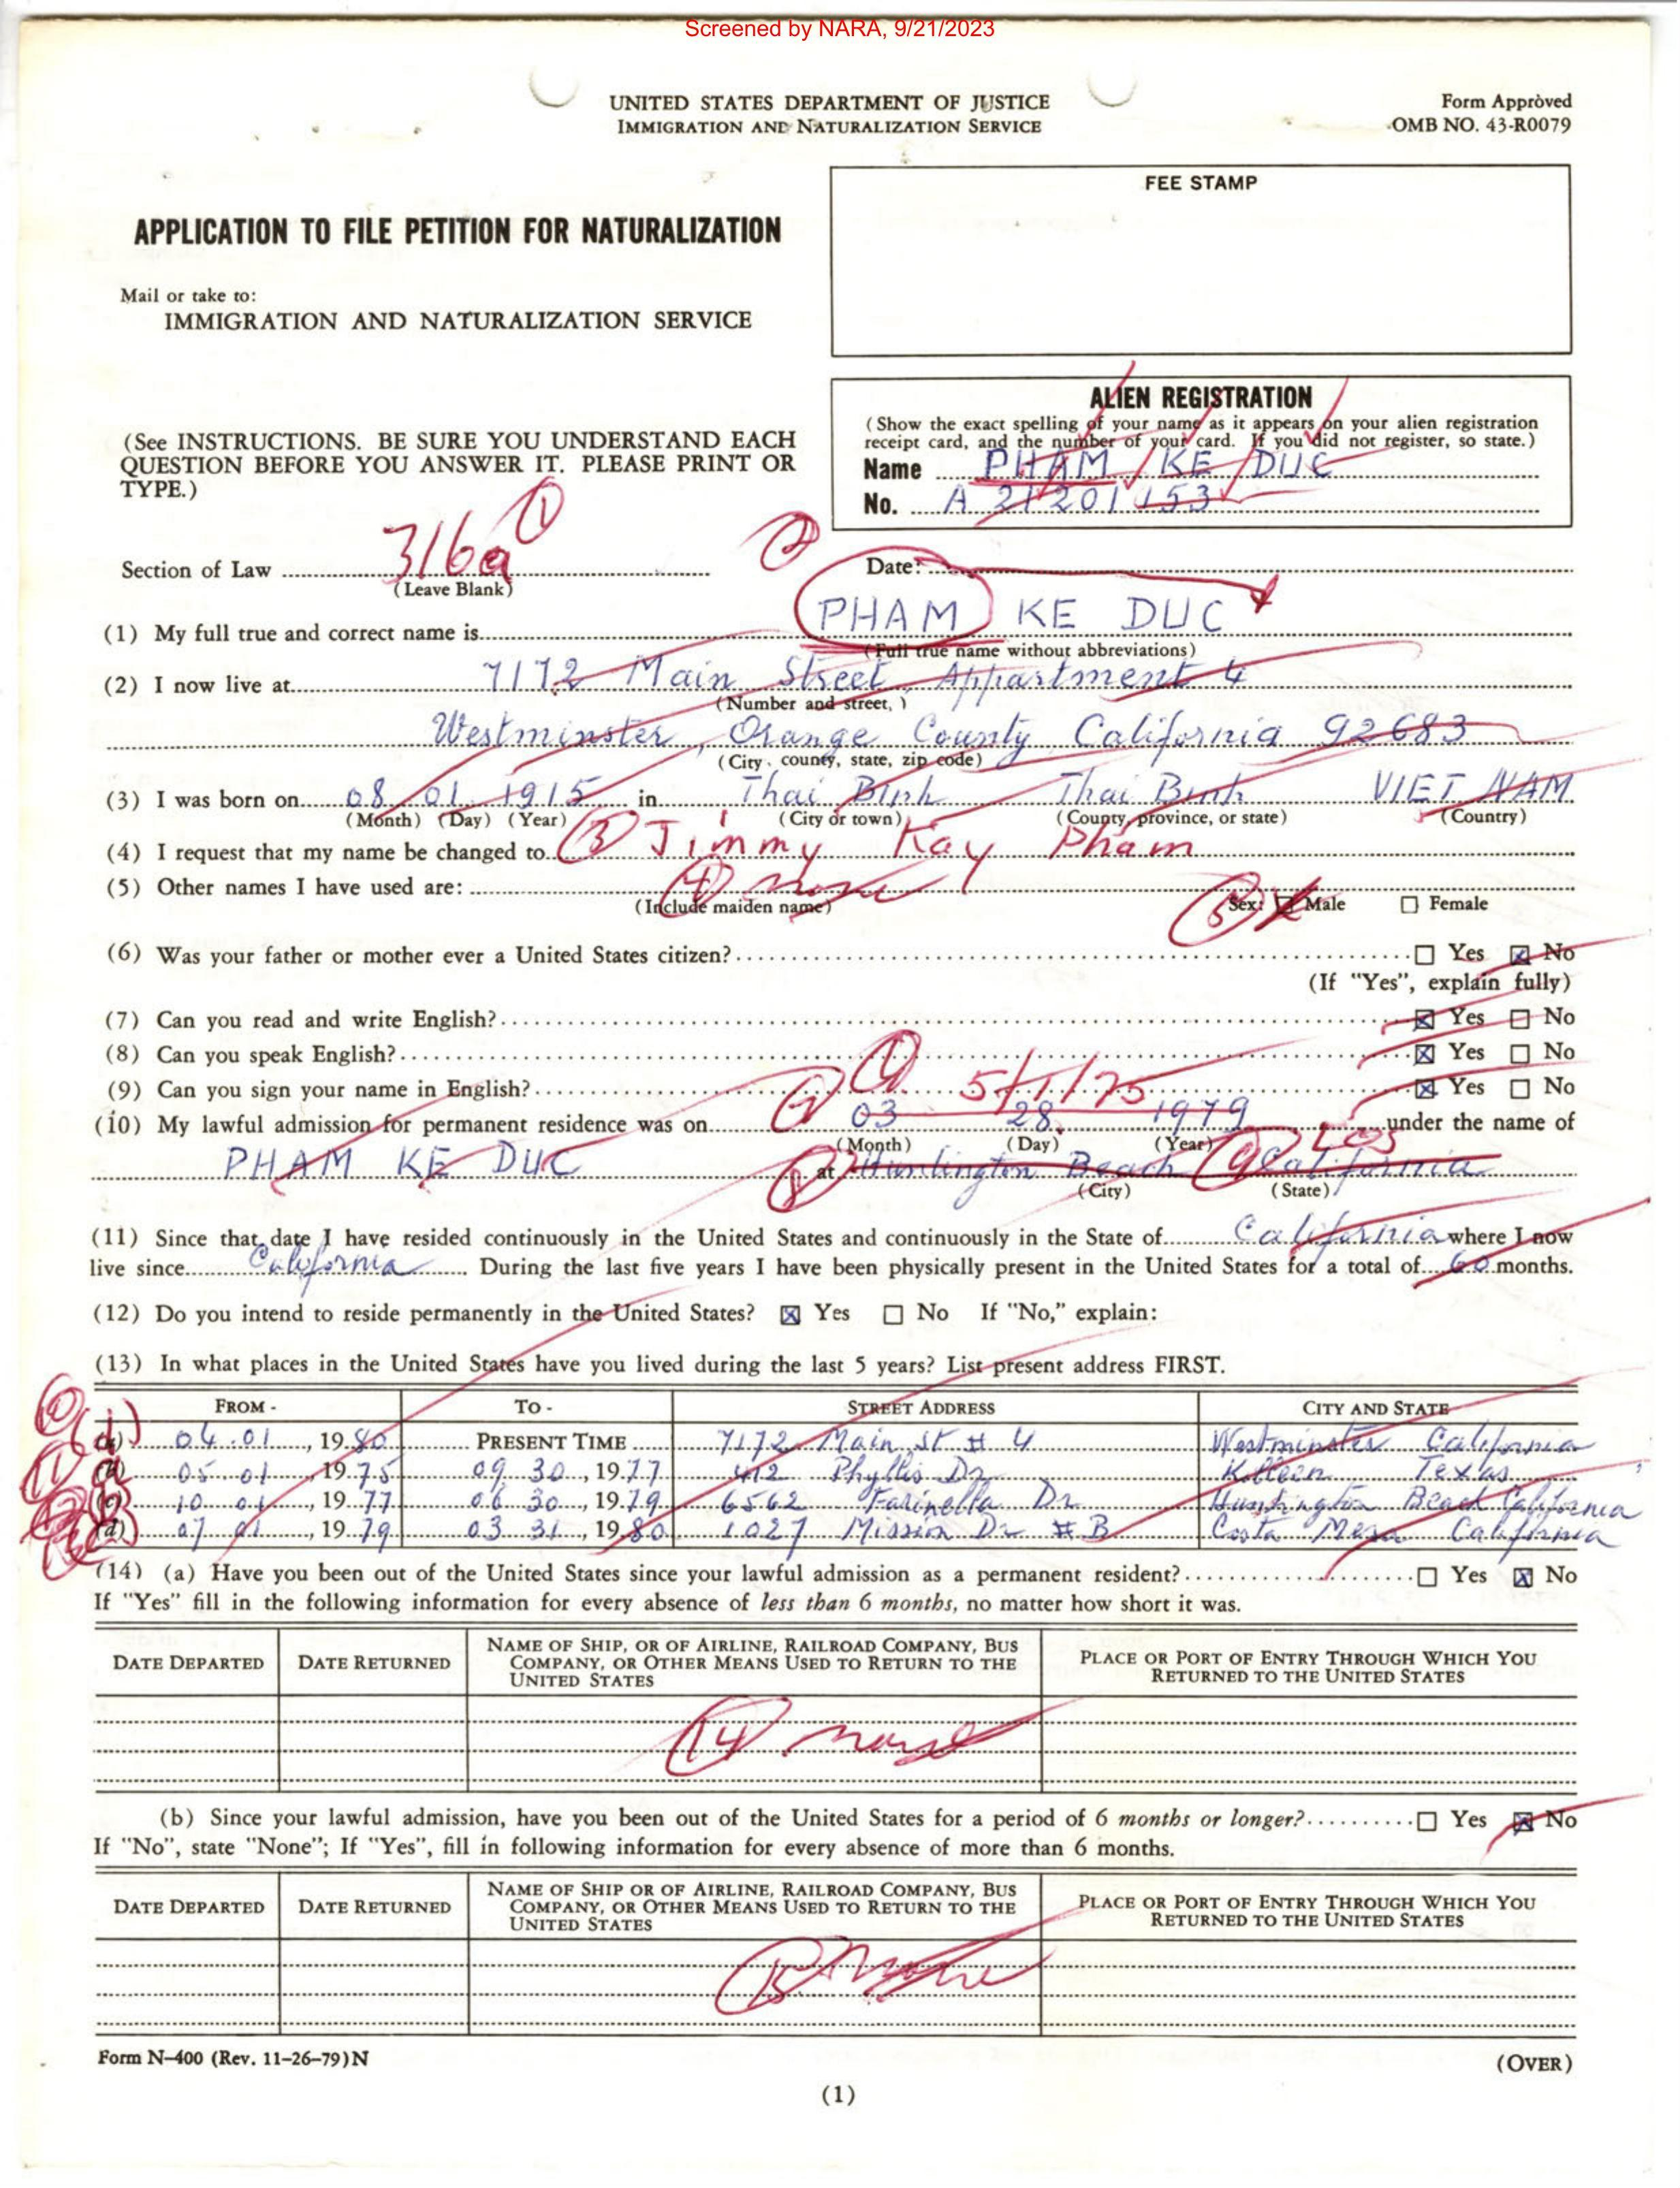 Screened by NARA, 9/21/2023
UNITED STATES DEPARTMENT OF JUSTICE
IMMIGRATION AND NATURALIZATION SERVICE
Form Approved
OMB NO. 43-R0079
FEE STAMP
APPLICATION TO FILE PETITION FOR NATURALIZATION
Mail or take to:
IMMIGRATION AND NATURALIZATION SERVICE
ALIEN REGISTRATION
(Show the exact spelling of your name as it appears on your alien registration
receipt card, and the number of your card. If you did not register, so state.)
Name PHAM KE DUC
No. A 21201153
(See INSTRUCTIONS. BE SURE YOU UNDERSTAND EACH
QUESTION BEFORE YOU ANSWER IT. PLEASE PRINT OR
TYPE.)
1
Section of Law 316a
(Leave Blank)
2
Date:
(1) My full true and correct name is PHAM KE DUC
(Full true name without abbreviations)
(2) I now live at 7172 Main Street, Appartment 4
(Number and street,)
Westminster, Orange County California 92683
(City, county, state, zip code)
(3) I was born on 08 01 1915 in Thai Binh Thai Binh VIET NAM
(Month) (Day) (Year) (City or town) (County, province, or state) (Country)
(4) I request that my name be changed to 3 Jimmy Kay Pham
(5) Other names I have used are: 4 none
(Include maiden name) 5 Sex: Male Female
(6) Was your father or mother ever a United States citizen? Yes No
(If "Yes", explain fully)
(7) Can you read and write English? Yes No
(8) Can you speak English? Yes No
(9) Can you sign your name in English? 5/1/75 Yes No
(10) My lawful admission for permanent residence was on 03 28 1979 under the name of
(Month) (Day) (Year)
PHAM KE DUC 8 at Huntington Beach 9 California
(City) (State)
LOS
(11) Since that date I have resided continuously in the United States and continuously in the State of California where I now
live since California. During the last five years I have been physically present in the United States for a total of 60 months.
(12) Do you intend to reside permanently in the United States? Yes No If "No," explain:
(13) In what places in the United States have you lived during the last 5 years? List present address FIRST.
FROM - TO - STREET ADDRESS CITY AND STATE
(a) 04.01, 1980 PRESENT TIME 7172 Main St # 4 Westminster California
(b) 05.01, 1975 09 30, 1977 412 Phyllis Dr Killeen Texas
(c) 10 01, 1977 06 30, 1979 6562 Farinella Dr Huntington Beach California
(d) 07 01, 1979 03 31, 1980 1027 Mission Dr #B Costa Mesa California
(14) (a) Have you been out of the United States since your lawful admission as a permanent resident? Yes No
If "Yes" fill in the following information for every absence of less than 6 months, no matter how short it was.
DATE DEPARTED DATE RETURNED NAME OF SHIP, OR OF AIRLINE, RAILROAD COMPANY, BUS COMPANY, OR OTHER MEANS USED TO RETURN TO THE UNITED STATES PLACE OR PORT OF ENTRY THROUGH WHICH YOU RETURNED TO THE UNITED STATES
14 none
(b) Since your lawful admission, have you been out of the United States for a period of 6 months or longer? Yes No
If "No", state "None"; If "Yes", fill in following information for every absence of more than 6 months.
DATE DEPARTED DATE RETURNED NAME OF SHIP OR OF AIRLINE, RAILROAD COMPANY, BUS COMPANY, OR OTHER MEANS USED TO RETURN TO THE UNITED STATES PLACE OR PORT OF ENTRY THROUGH WHICH YOU RETURNED TO THE UNITED STATES
15 none
Form N-400 (Rev. 11-26-79)N
(OVER)
(1)